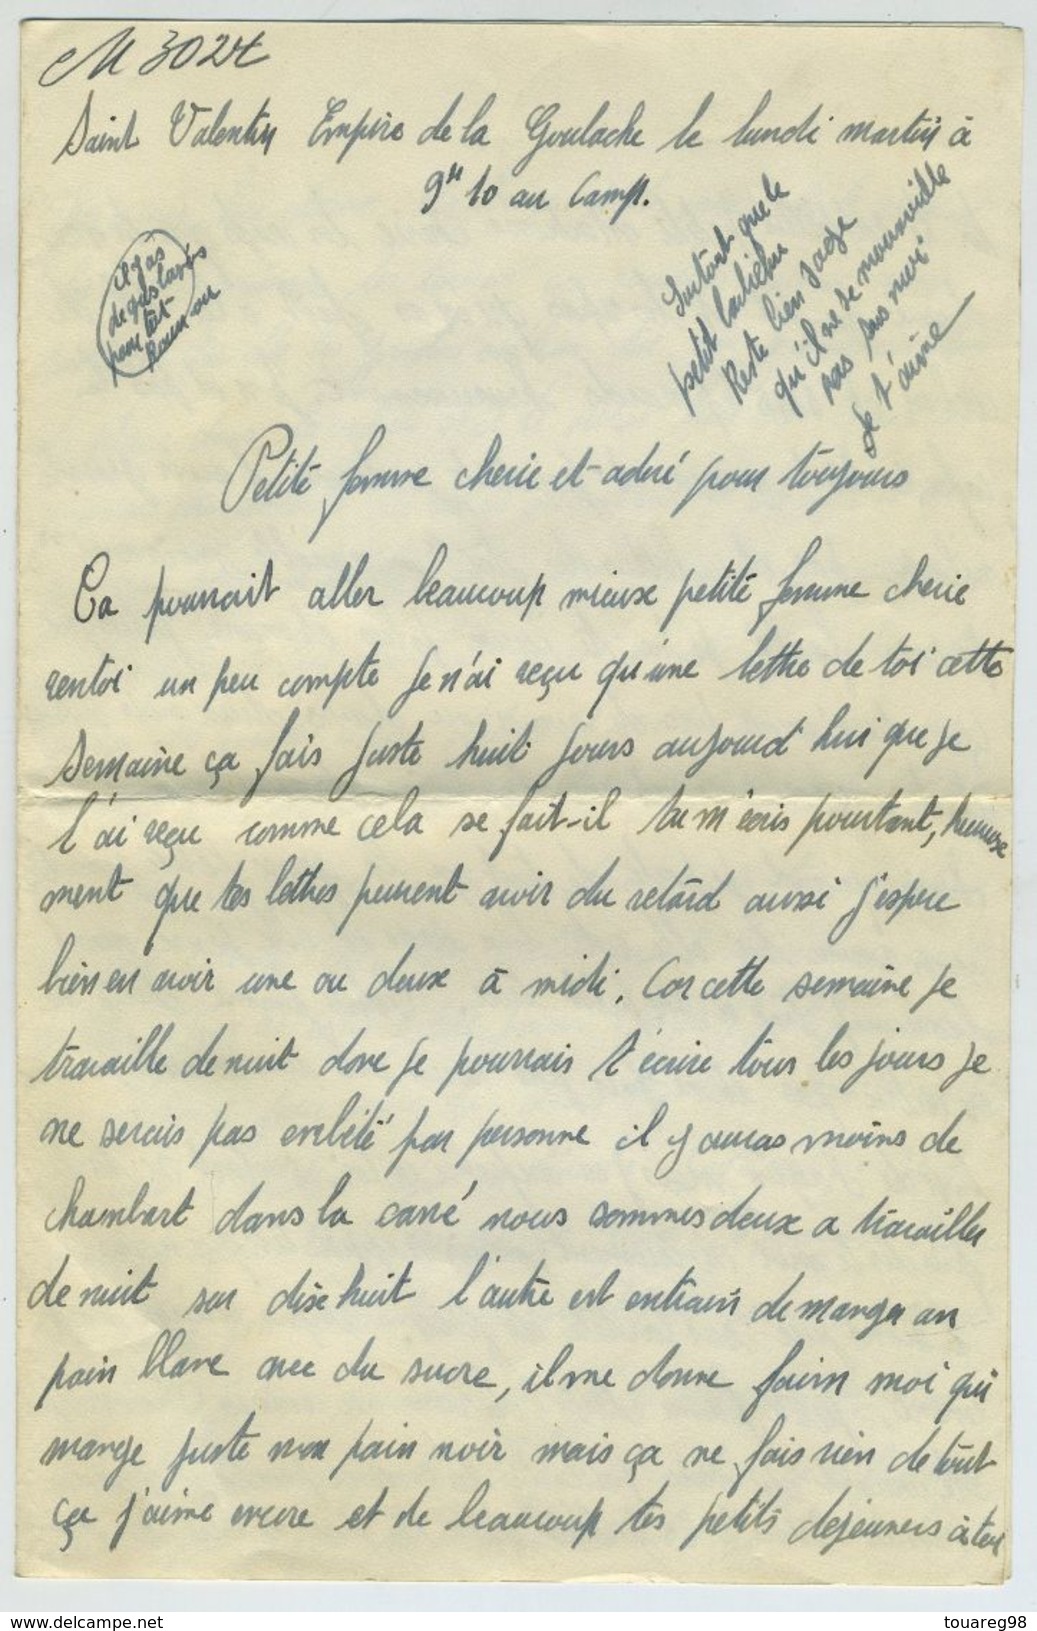 M 3024
Saint Valentin Empire de la Goulache le lundi martin à
9H 10 au Camp.
il y as
de gas
pour
Surtout que le
petit
Reste bien sage
qu'il ne se
pas
Je t'aime
Petite femme cherie et adoré pour toujours
Ca pourrait aller beaucoup mieuse petite femme cherie
rentoi un peu compte je n'ai reçu qu'une lettre de toi cette
semaine ça fais juste huit jours aujourd'hui que je
l'ai reçu comme cela se fait-il tu m'ecris pourtant, heureuse
ment que tes lettres peuvent avoir du retard aussi j'espere
bien en avoir une ou deux à midi. Car cette semaine je
travaille de nuit donc je pourrais t'écrire tous les jours je
ne serais pas embété par personne il y auras moins de
chambart dans la carré nous sommes deux a travailler
de nuit sur dise huit l'autre est entrain de manger un
pain blanc avec du sucre, il me donne faim moi qui
mange juste mon pain noir mais ça ne fais rien de tout
ça j'aime encore et de beaucoup tes petits dejeuners à toi
www.delcampe.net
touareg98